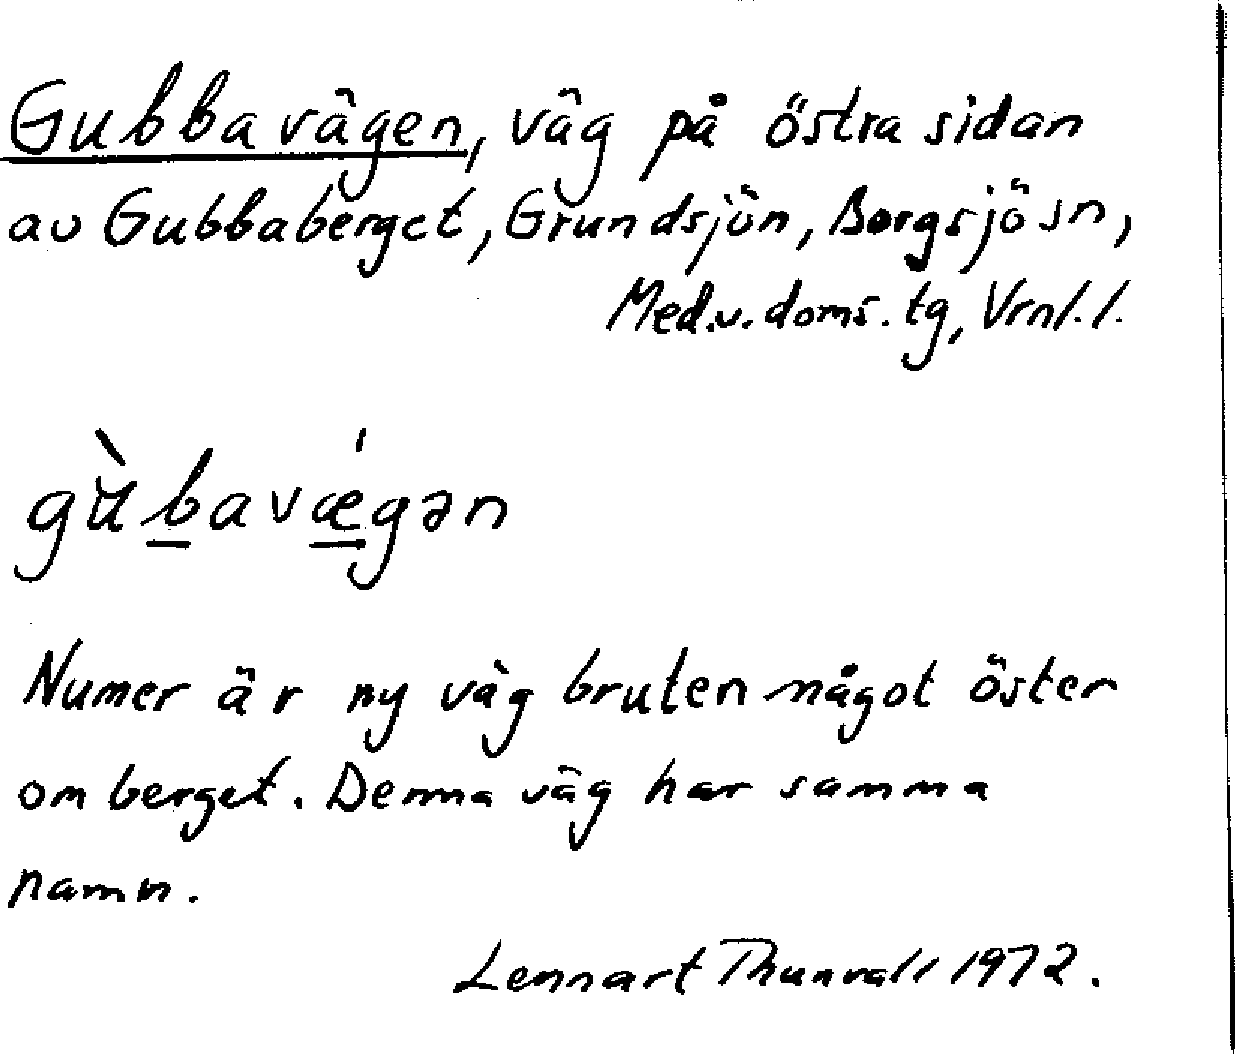 Gubbavägen, väg på östra sidan
av Gubbaberget, Grundsjön, Borgsjö sn,
Med.v. doms. tg, Vrnl. l.
gùbavǽgən
Numer är ny väg bruten något öster
om berget. Denna väg har samma
namn.
Lennart Thunvall 1972.